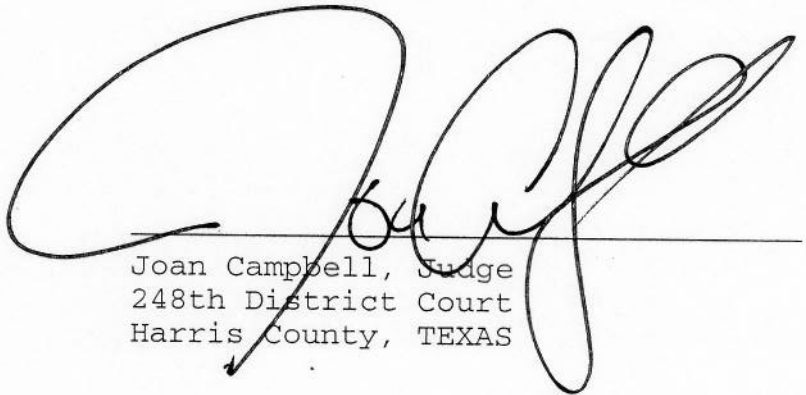 Joan Campbell, Judge
248th District Court
Harris County, TEXAS